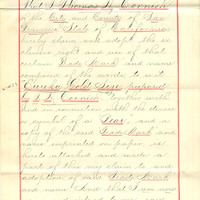 That I Thomas H. Connor
of the City and County of San
Francisco State of California
hereby claim and adopt the ex-
clusive right and use of that
certain Trade Mark and name
composed of the words to wit
Eureka Cold Size prepared
by T. H. Connor together with
and in connection with the device
or symbol of a "Bear" and a
copy of the said Trade Mark and
name imprinted on paper is
here to attached and made a
part of this my claim to and
adoption of said Trade Mark
and name. And that I am now